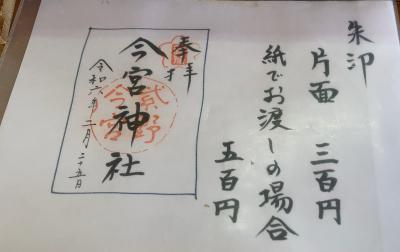 朱印
片面 三百円
紙でお渡しの場合
五百円
奉拝
今宮神社
武野
今宮
令和六年二月二十五日